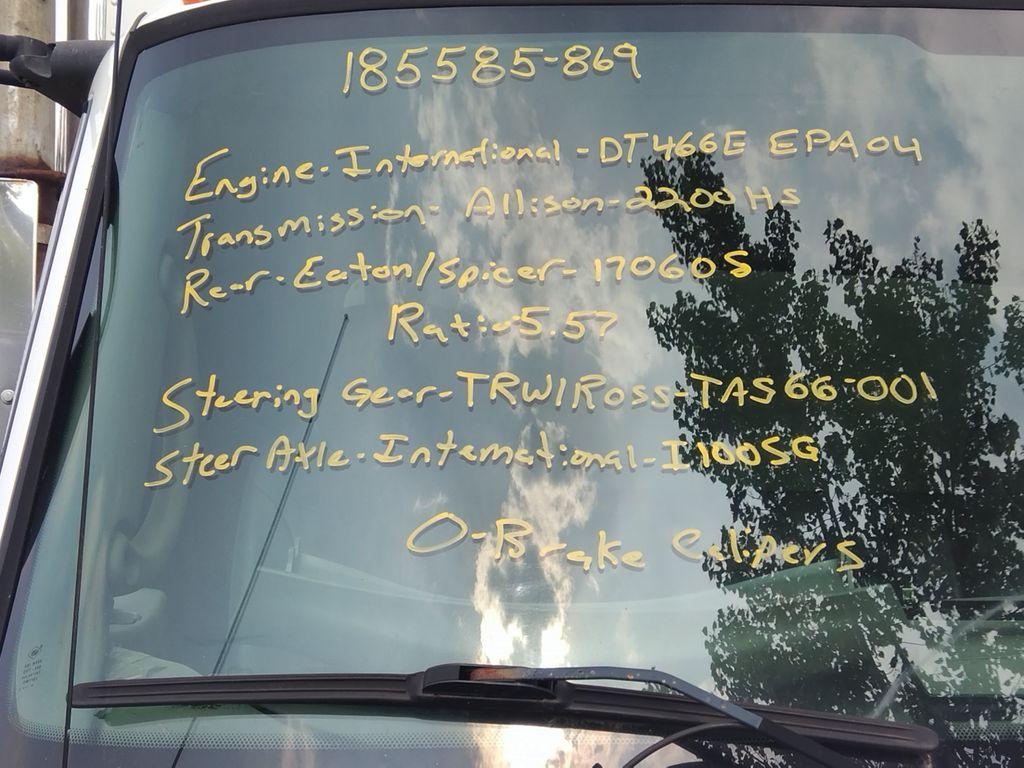 185585-869
Engine-International-DT466E EPA04
Transmission-Allison-2200HS
Rear-Eaton/Spicer-17060S
Ratio-5.57
Steering Gear-TRW/Ross-TAS66-001
Steer Axle-International-I100SG
0-Brake Calipers